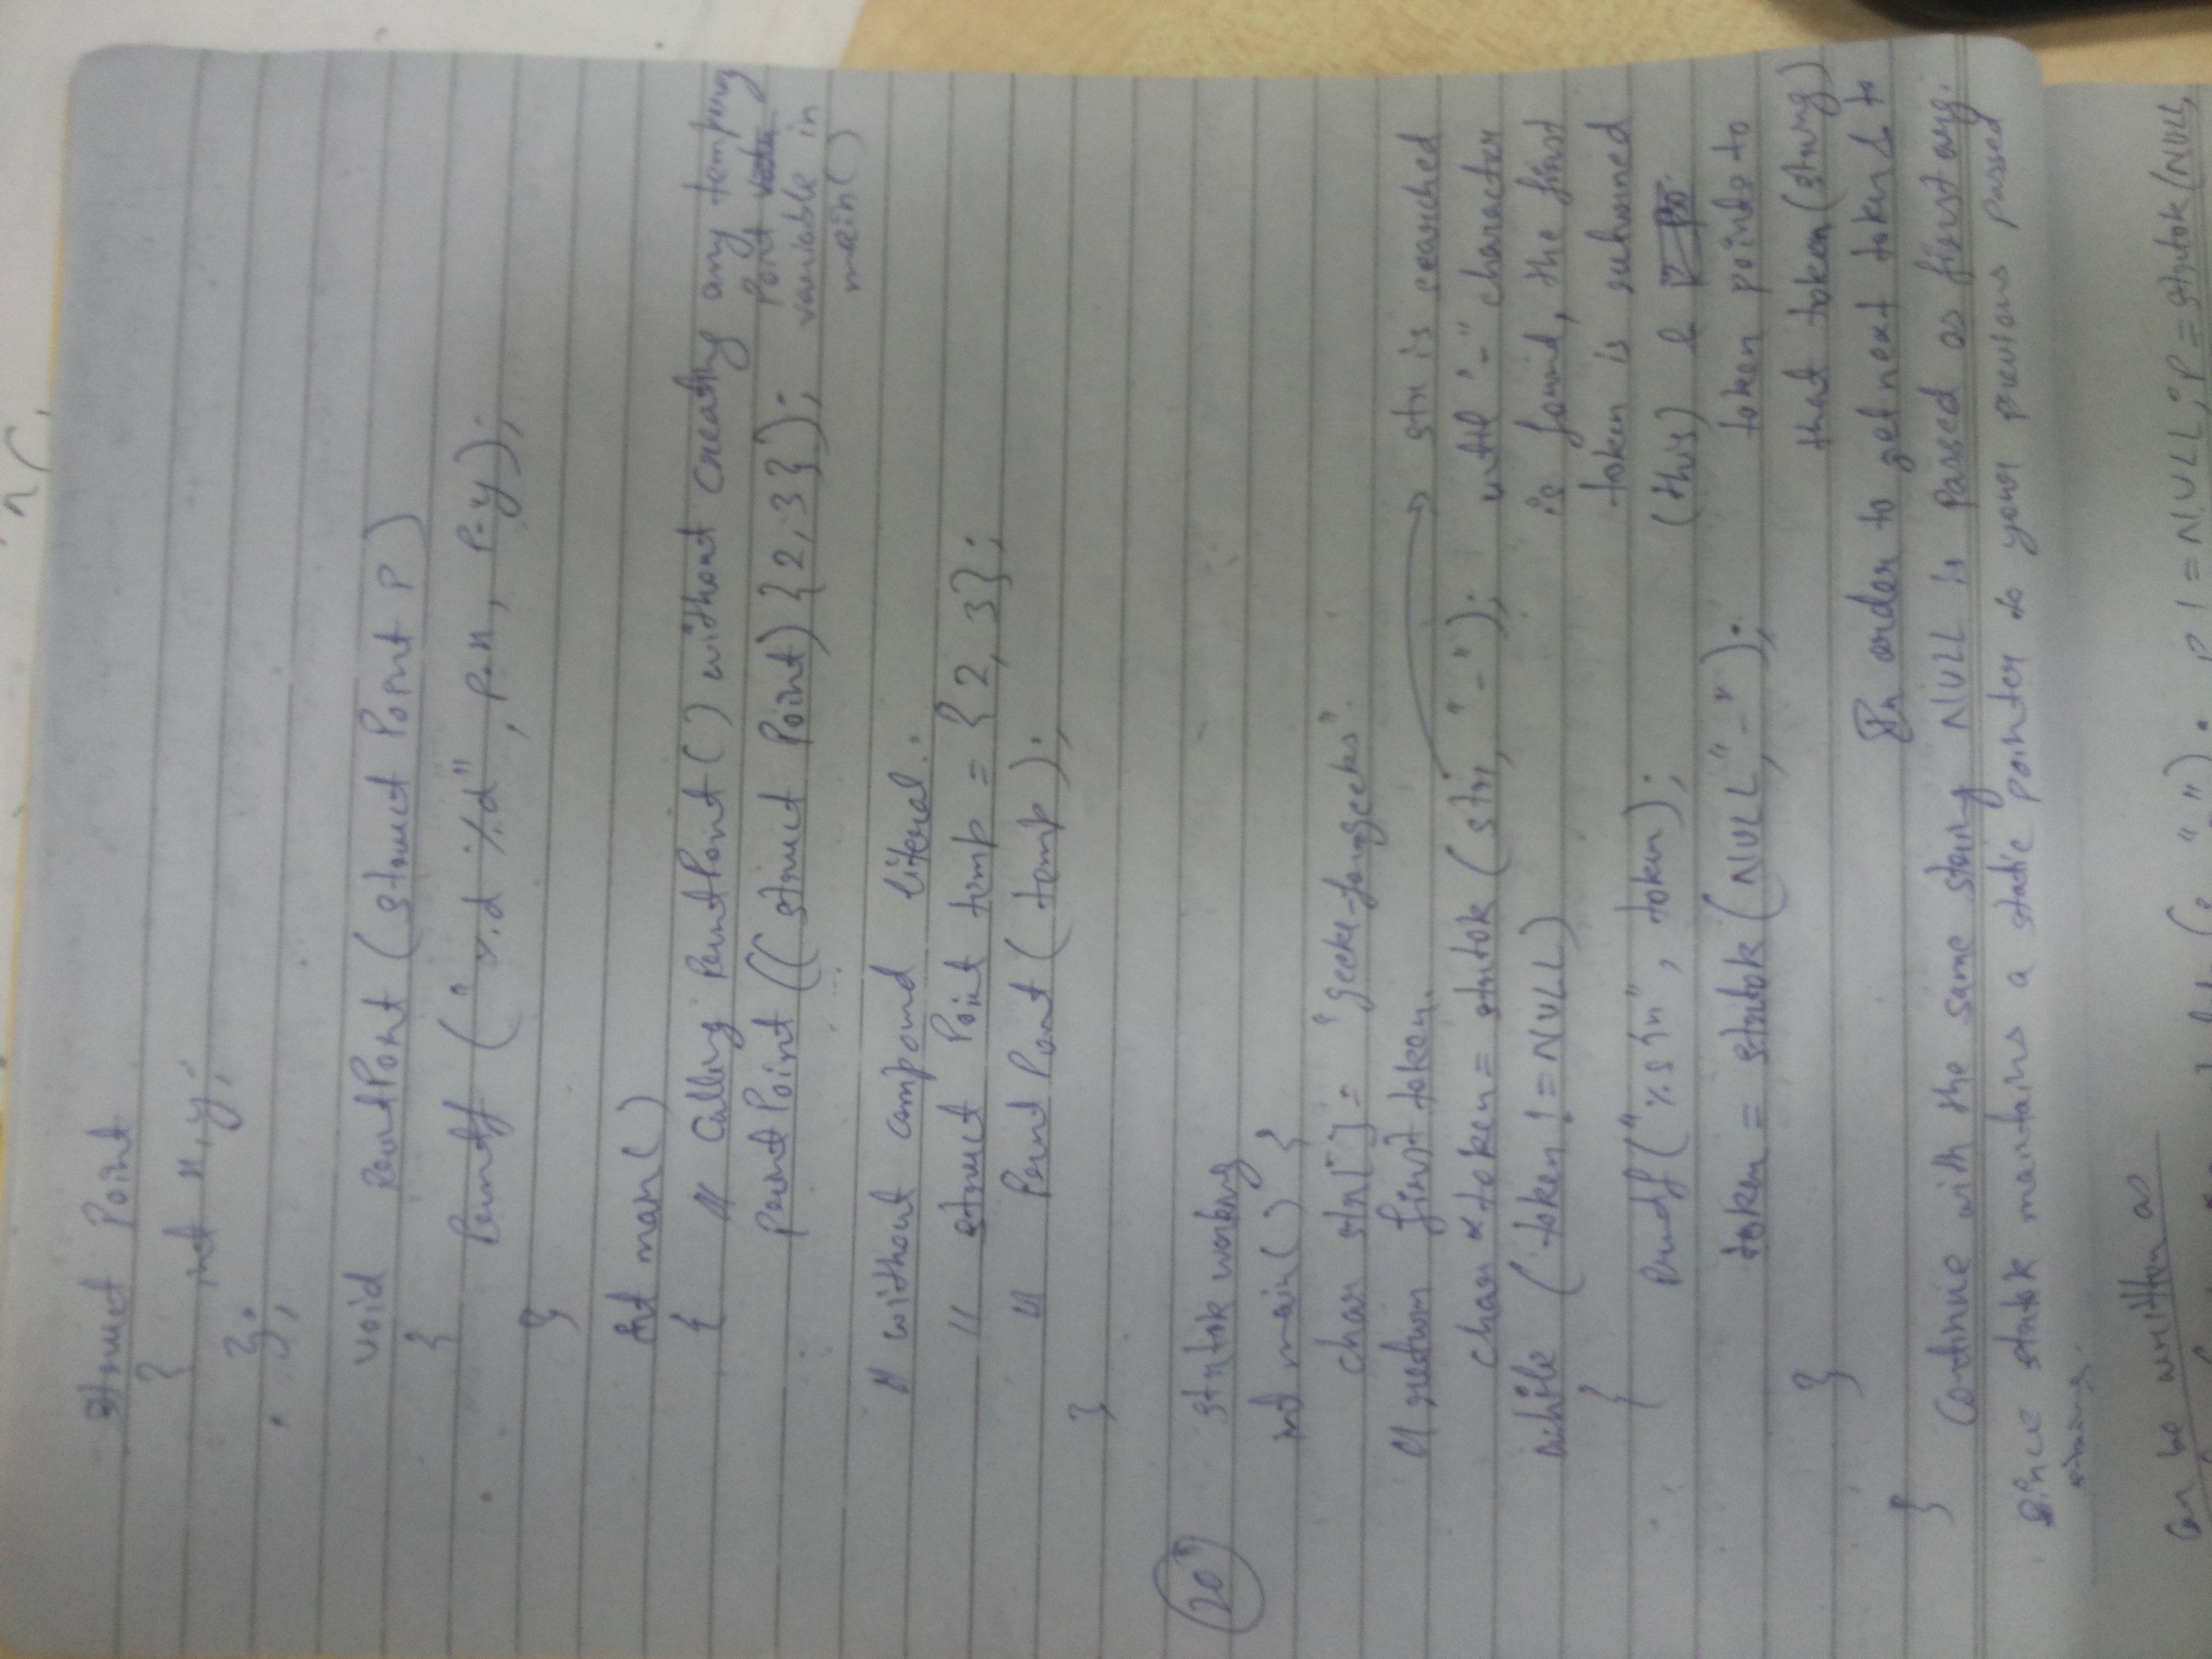 struct Point
{ int x, y;
};
void printPoint (struct Point P)
{
Printf ("%d %d", P.x, P.y);
}
int main()
{ // Calling PrintPoint() without creating any temporary
Point
variable in
main()
printPoint ((struct Point) {2, 3});
// without compound literal.
// struct Point temp = {2, 3};
// Print Point (temp);
}
20
strtok working
int main() {
char str[] = "geeks-for-geeks".
// return first token.
char *token = strtok (str, "-");
while (token != NULL)
{
Printf ("%s\n", token);
token = strtok (NULL, "-");
}
}
str is searched
until "-" character
is found, the first
token is returned
(this) &
token points to
that token (string)
In order to get next token & to
Continue with the same string NULL is passed as first arg.
Since strtok maintains a static pointer to your previous passed
string.
Can be written as
("-"); P != NULL; P = strtok (NULL,